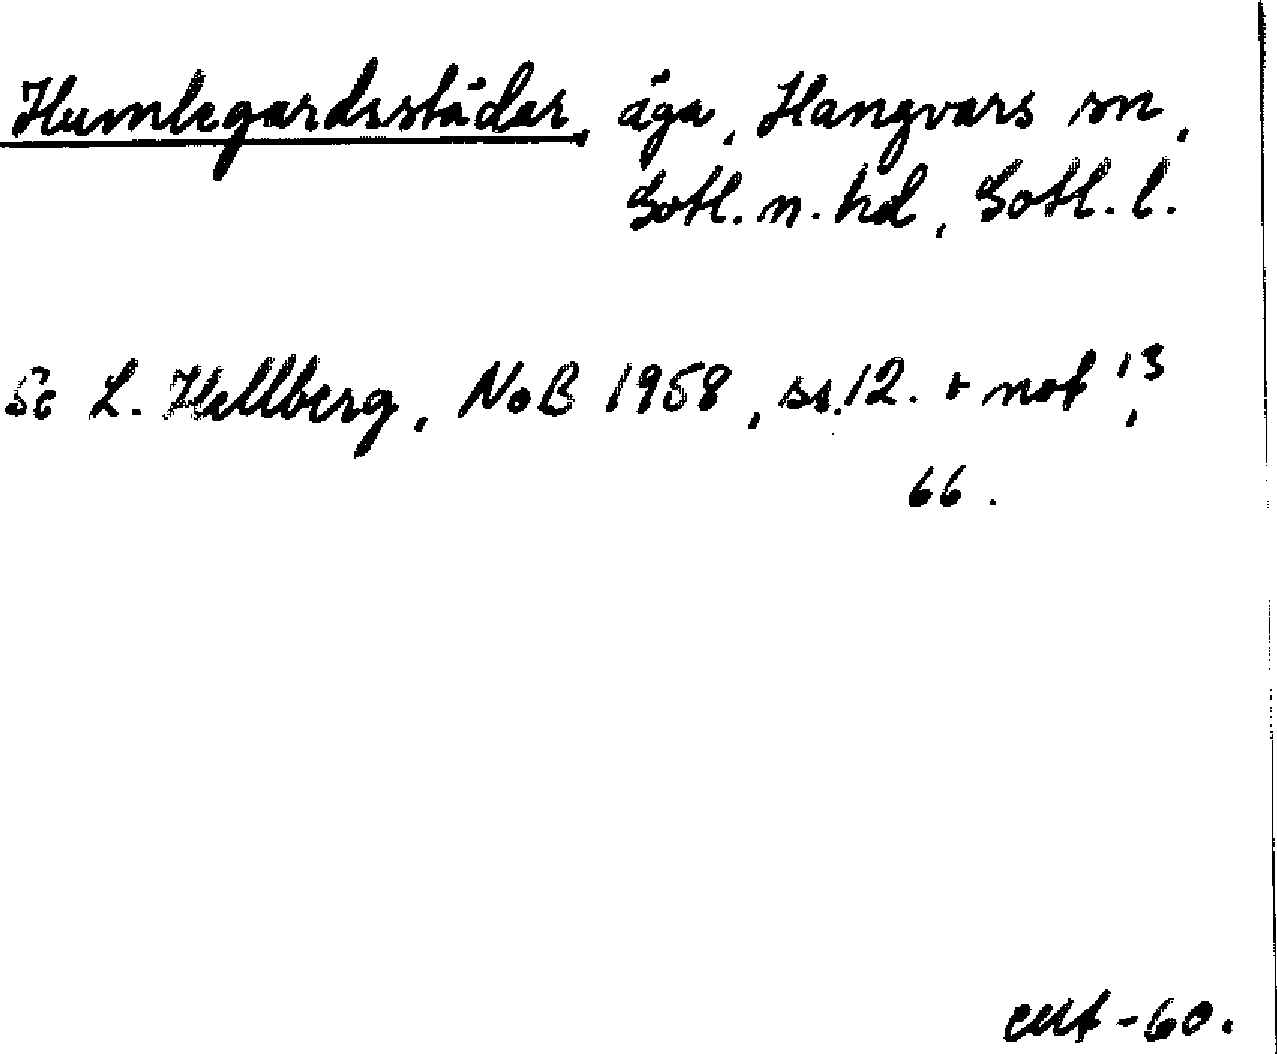 Humlegardsstäder, äga, Hangvars sn,
Gotl. n. hd, Gotl. l.
Se L. Hellberg, NoB 1958, ss. 12. + not 13,
66.
-60.